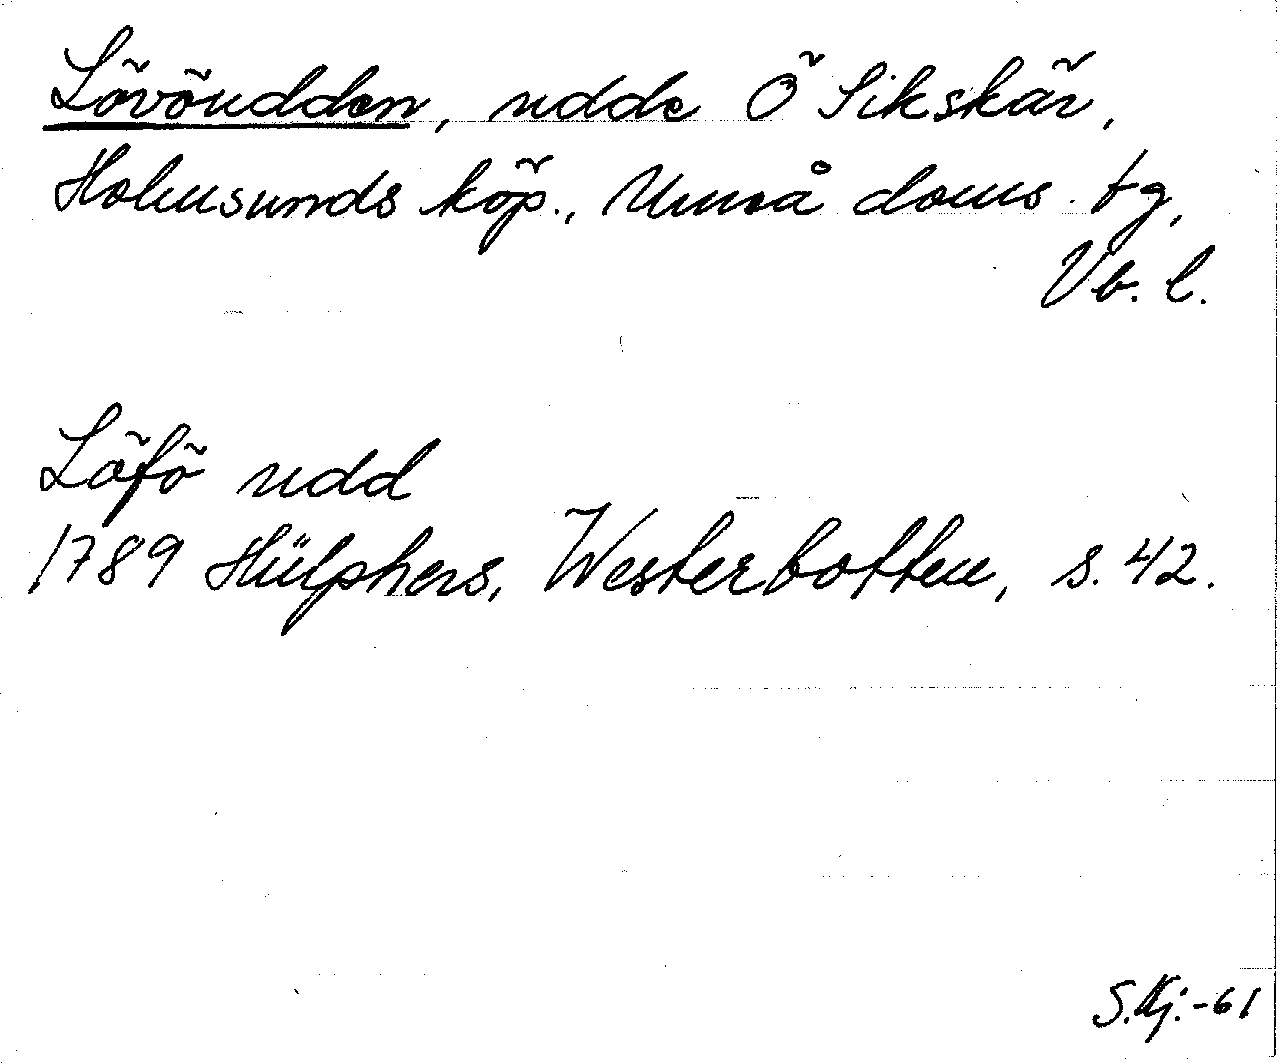 Lövöudden, udde Ö Sikskär,
Holmsunds köp., Umeå doms. tg,
Vb. l.
Löfö udd
1789 Hülphers, Westerbotten, s. 42.
S.Kj.-61